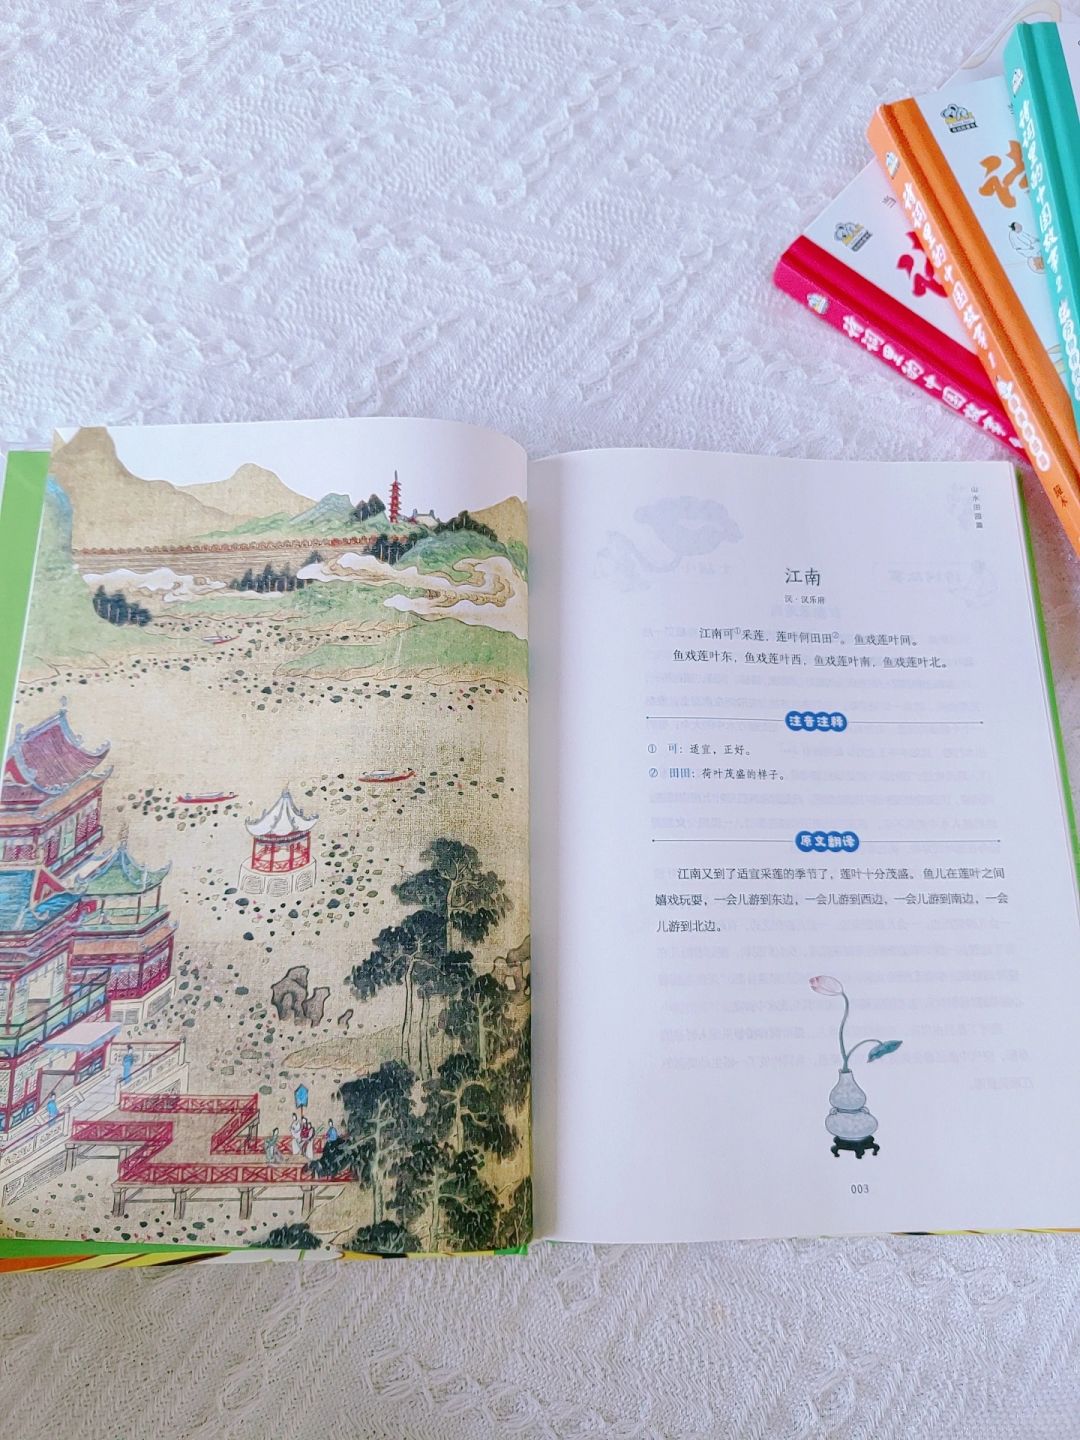 诗词里的中国故事
诗词里的中国故事
诗词里的中国故事
山水田园篇
江南
汉·汉乐府
江南可①采莲，莲叶何田田②。鱼戏莲叶间。
鱼戏莲叶东，鱼戏莲叶西，鱼戏莲叶南，鱼戏莲叶北。
注音注释
① 可：适宜，正好。
② 田田：荷叶茂盛的样子。
原文翻译
江南又到了适宜采莲的季节了，莲叶十分茂盛。鱼儿在莲叶之间
嬉戏玩耍，一会儿游到东边，一会儿游到西边，一会儿游到南边，一会
儿游到北边。
003